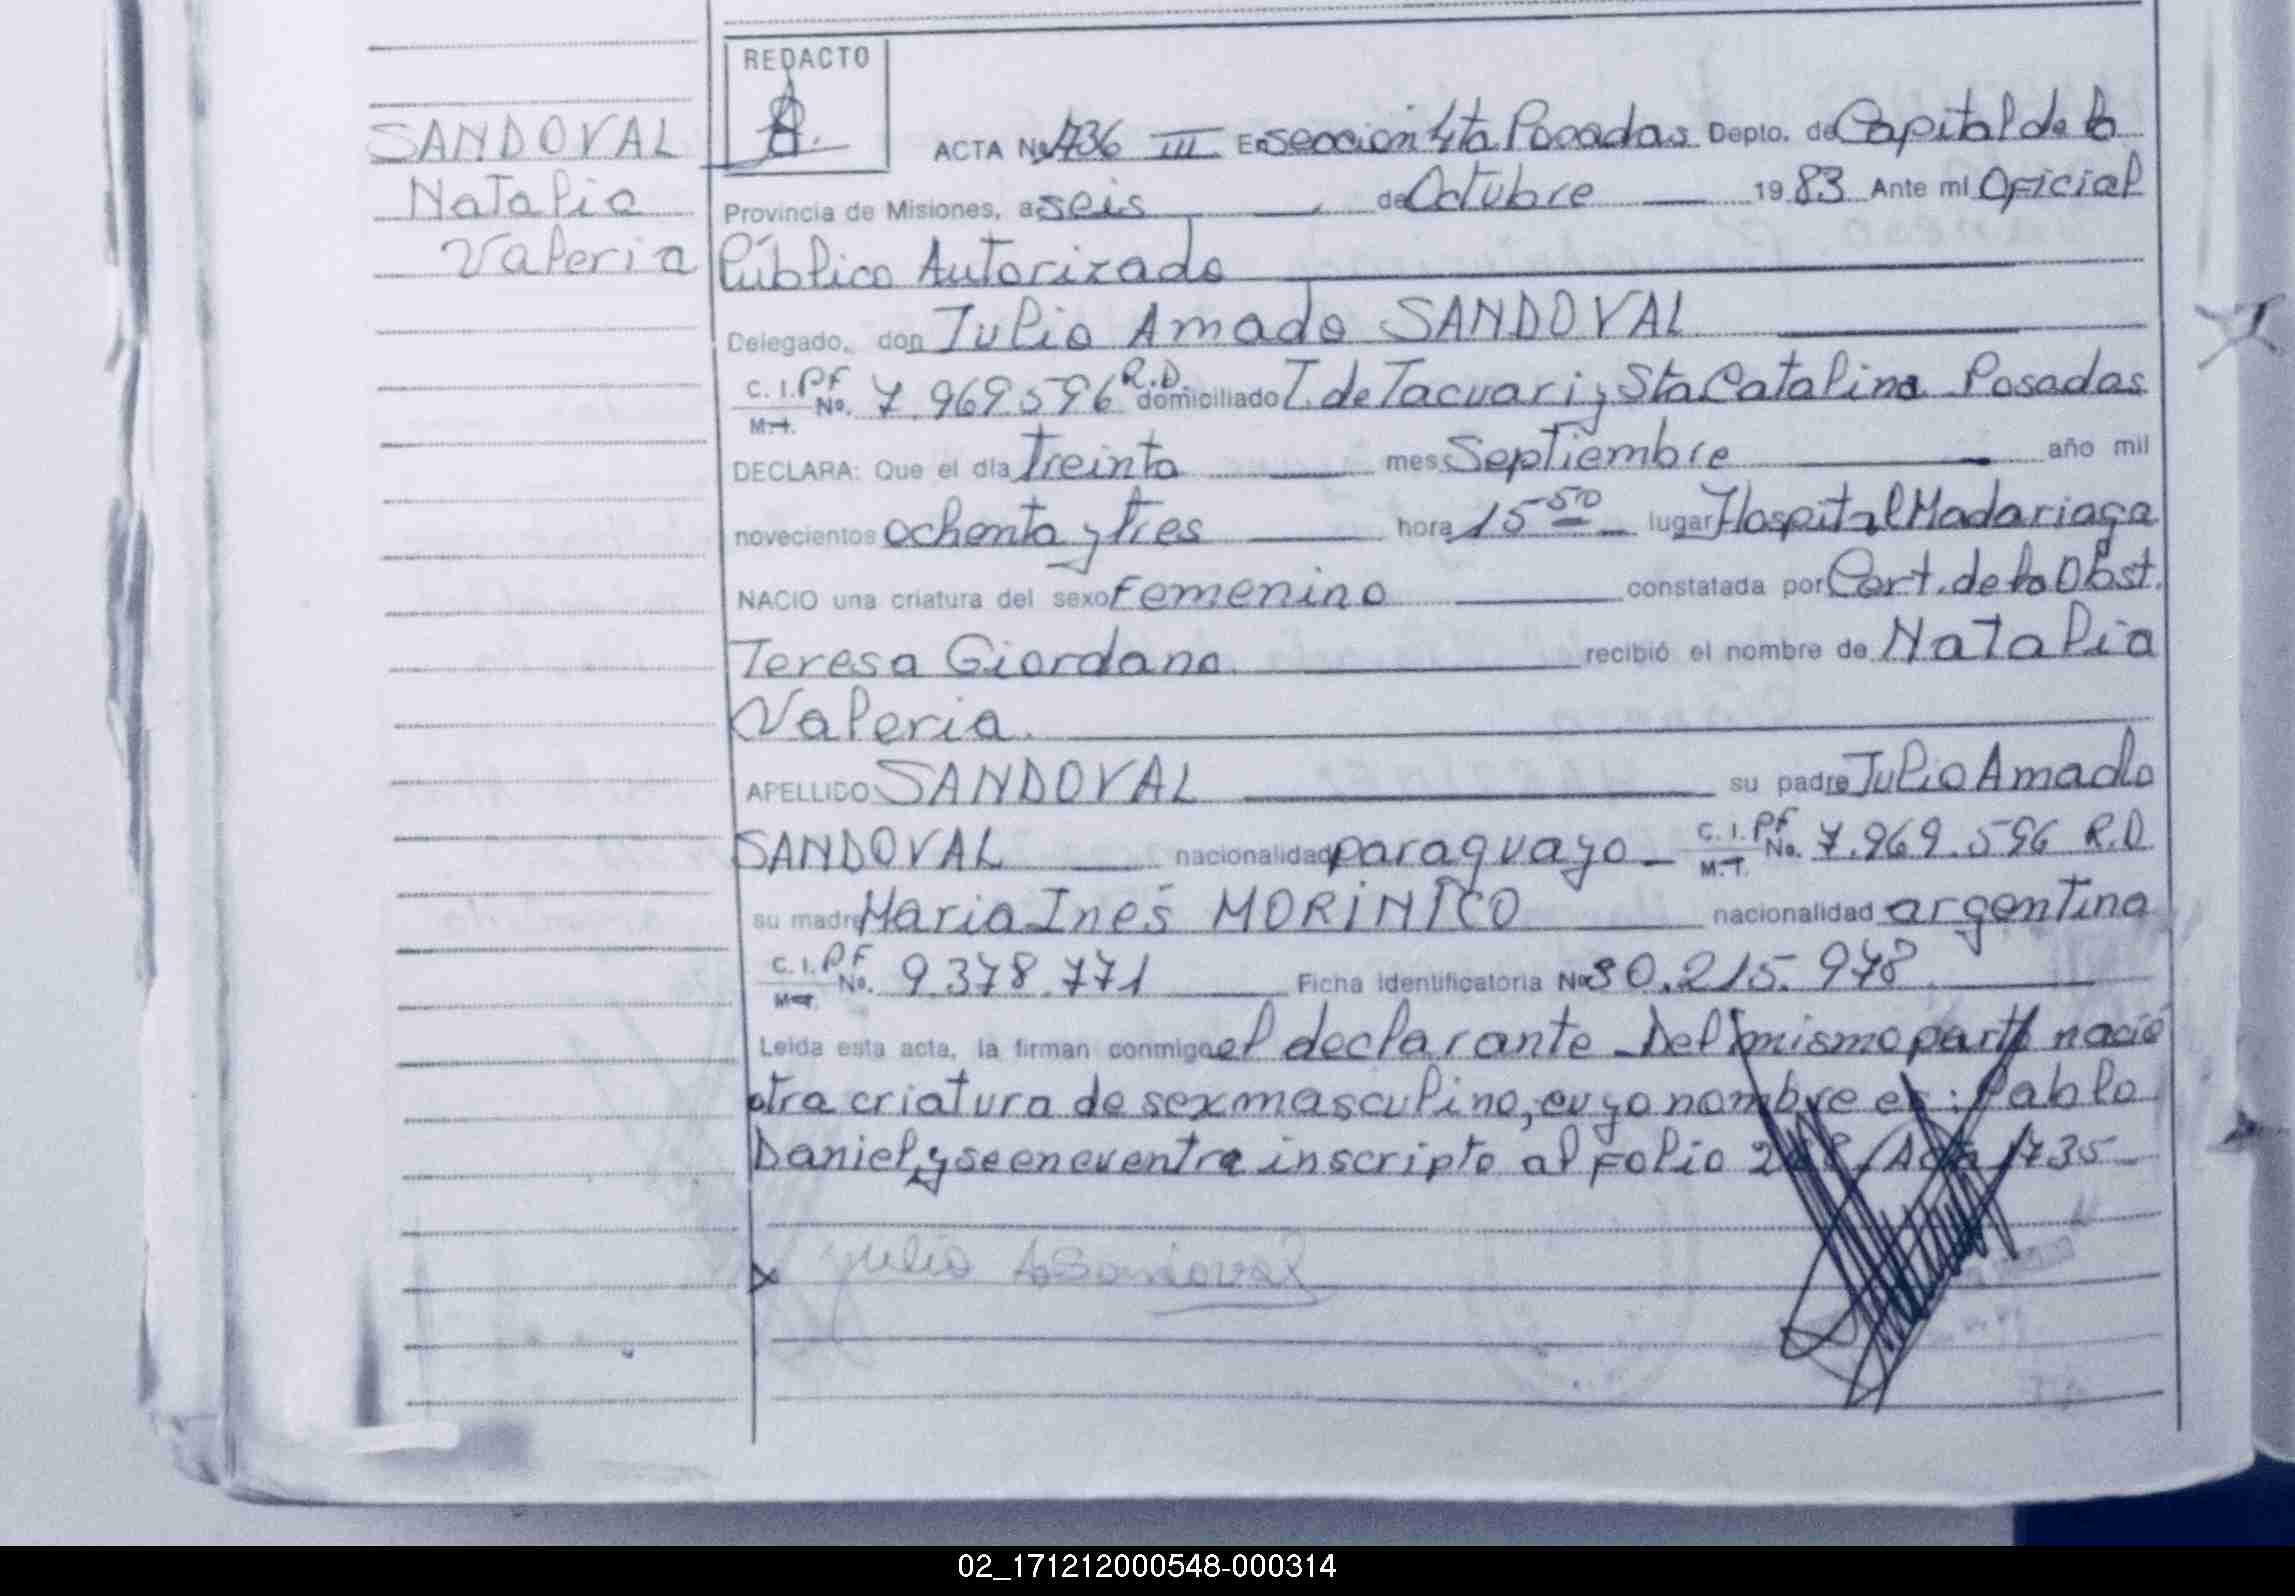 REDACTO
SANDOVAL
Natalia
Valeria
ACTA No 1736 III En seccion 4ta Posadas Depto. de Capital de la
Provincia de Misiones, a seis de Octubre 1983 Ante mi Oficial
Público Autorizado
Delegado, don Julio Amado SANDOVAL
C. I. PF No. 7.969.596 R.D. domiciliado T. de Tacuari y Sta Catalina Posadas
M. I.
DECLARA: Que el día Treinta mes Septiembre año mil
novecientos ochenta y tres hora 15 50 lugar Hospital Madariaga
NACIO una criatura del sexo Femenino constatada por Cert. de la Obst.
Teresa Giordano recibió el nombre de Natalia
Valeria.
APELLIDO SANDOVAL su padre Julio Amado
SANDOVAL nacionalidad paraguayo C. I. PF No. 7.969.596 R.D.
M. I.
su madre Maria Inés MORÍNICO nacionalidad argentina
C. I. PF No. 9.378.771 Ficha Identificatoria No 30.215.978
M. I.
Leída esta acta, la firman conmigo el declarante Del mismo parto nació
otra criatura de sex masculino, cuyo nombre es: Pablo
Daniel, y se encuentra inscripto al Folio Acta 1735
Julio A Sandoval
02_171212000548-000314